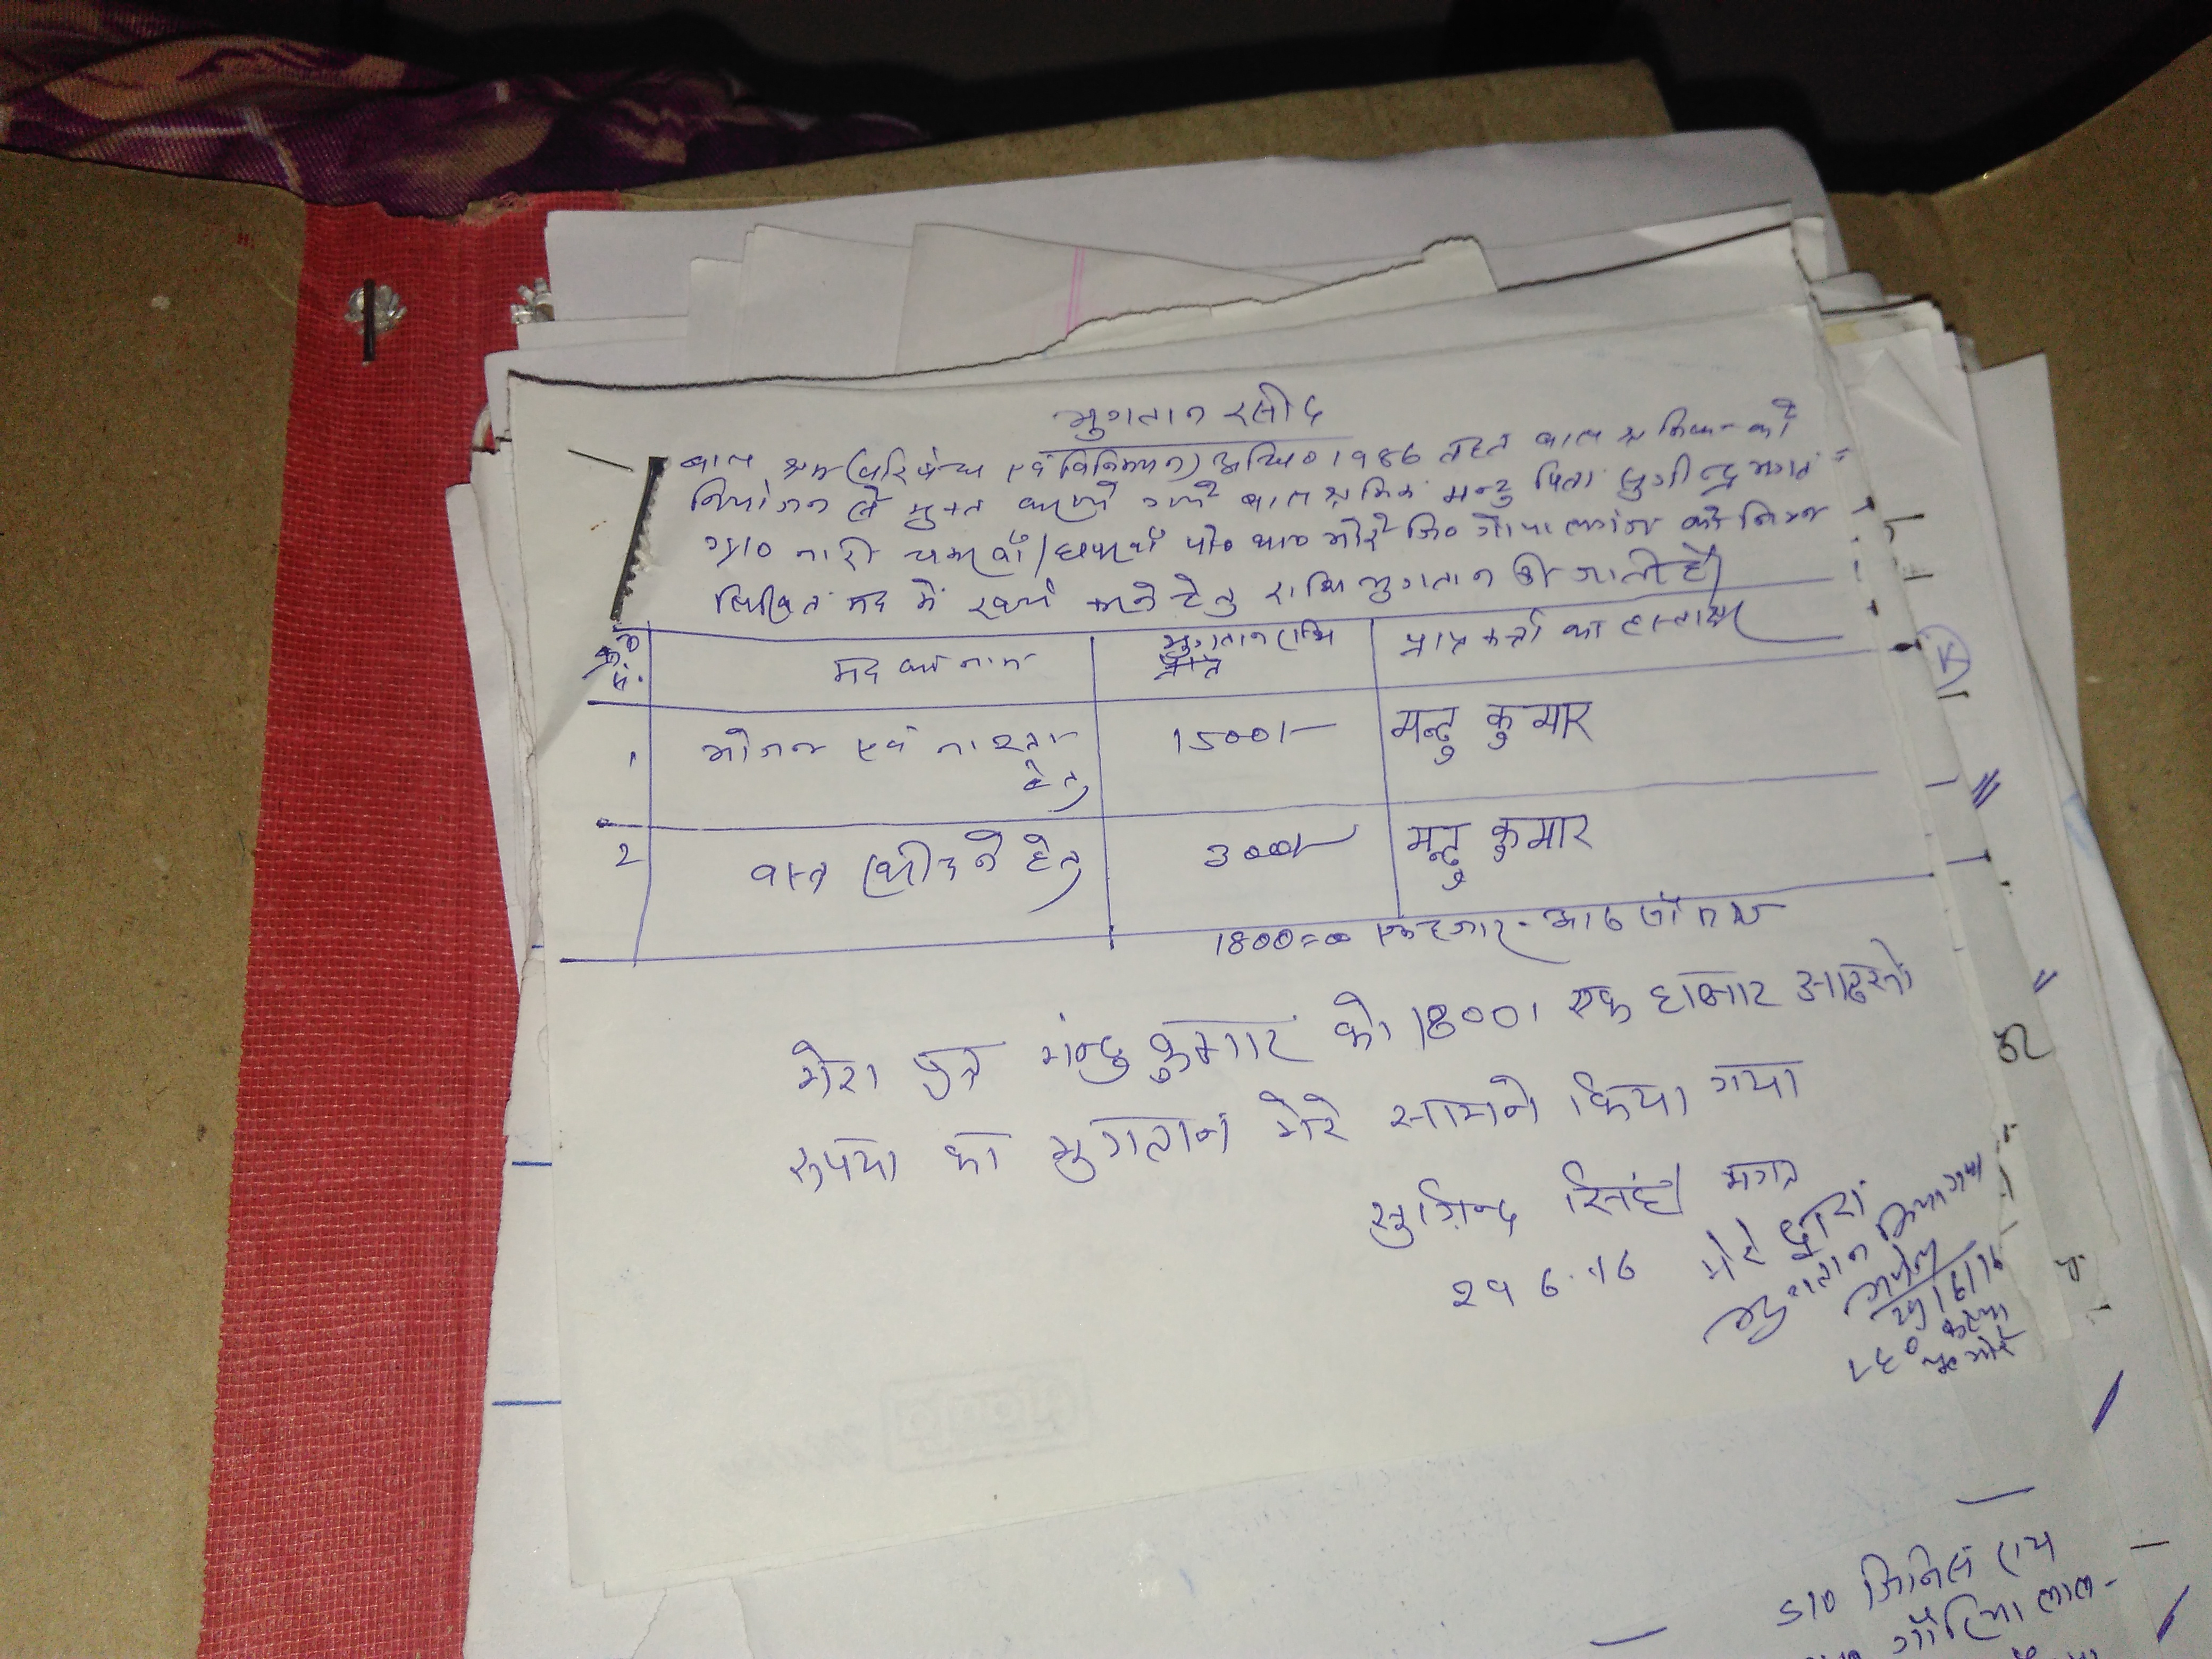 भुगतान रसीद
बाल श्रम (प्रतिषेध एवं विनियमन) अधि० 1986 तहत बाल श्रमिक को
नियोजन से मुक्त कराये गये बाल श्रमिक मन्टु पिता सुगीन्द्र भगत
ग्रा० चमरवाँ / छपरवाँ पो० था० भोरे जि० गोपालगंज को निम्न
लिखित मद में खर्च करने हेतु राशि भुगतान की जाती है।
क्र० सं. मद का नाम भुगतान राशि प्राप्त कर्ता का हस्ताक्षर
1 भोजन एवं नास्ता हेतु 1500/- मन्टु कुमार
2 वस्त्र खरीदने हेतु 300/- मन्टु कुमार
1800=00 एक हजार आठ सौ मात्र
मेरा पुत्र मन्टु कुमार को 1800/ एक हाजार आठ सो
रूपया का भुगतान मेरे सामने किया गया
सुगिन्द्र सिंह भगत
29 6.16
मेरे द्वारा
भुगतान किया गया
29/6/16
भोरे
S/O राय
लाल-